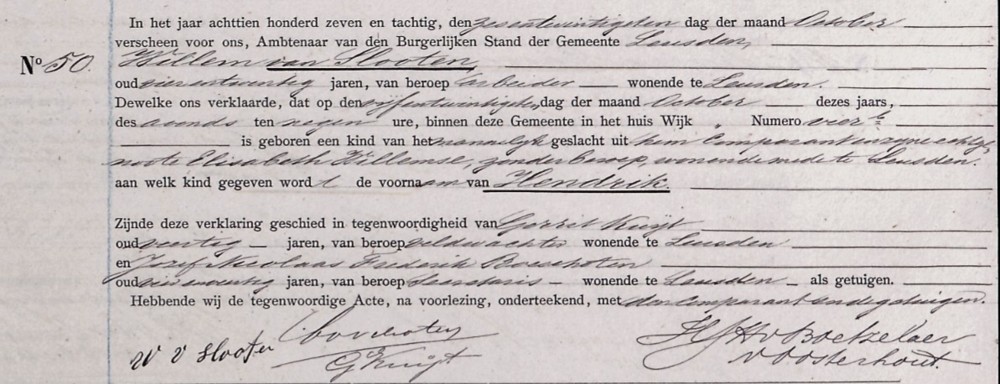 In het jaar achttien honderd zeven en tachtig, den zesentwintigsten dag der maand October
verscheen voor ons, Ambtenaar van den Burgerlijken Stand der Gemeente Leusden,
No 50. Willem van Slooten,
oud vierentwintig jaren, van beroep arbeider wonende te Leusden.
Dewelke ons verklaarde, dat op den vijfentwintigsten dag der maand October dezes jaars,
des avonds ten negen ure, binnen deze Gemeente in het huis Wijk , Numero vier b
is geboren een kind van het mannelijk geslacht uit hem Comparant en zijne echtge-
noote Elisabeth Willemse, zonder beroep, wonende mede te Leusden.
aan welk kind gegeven wordt de voornaam van Hendrik.
Zijnde deze verklaring geschied in tegenwoordigheid van Gerrit Kuijt
oud veertig jaren, van beroep veldwachter wonende te Leusden
en Josef Nicolaas Frederik Boeschoten
oud jaren, van beroep Secretaris wonende te Leusden als getuigen.
Hebbende wij de tegenwoordige Acte, na voorlezing, onderteekend, met den Comparant en de getuigen.
W v Slooten Boeschoten HJHvBoetzelaer
G Kuijt v Oosterhout.